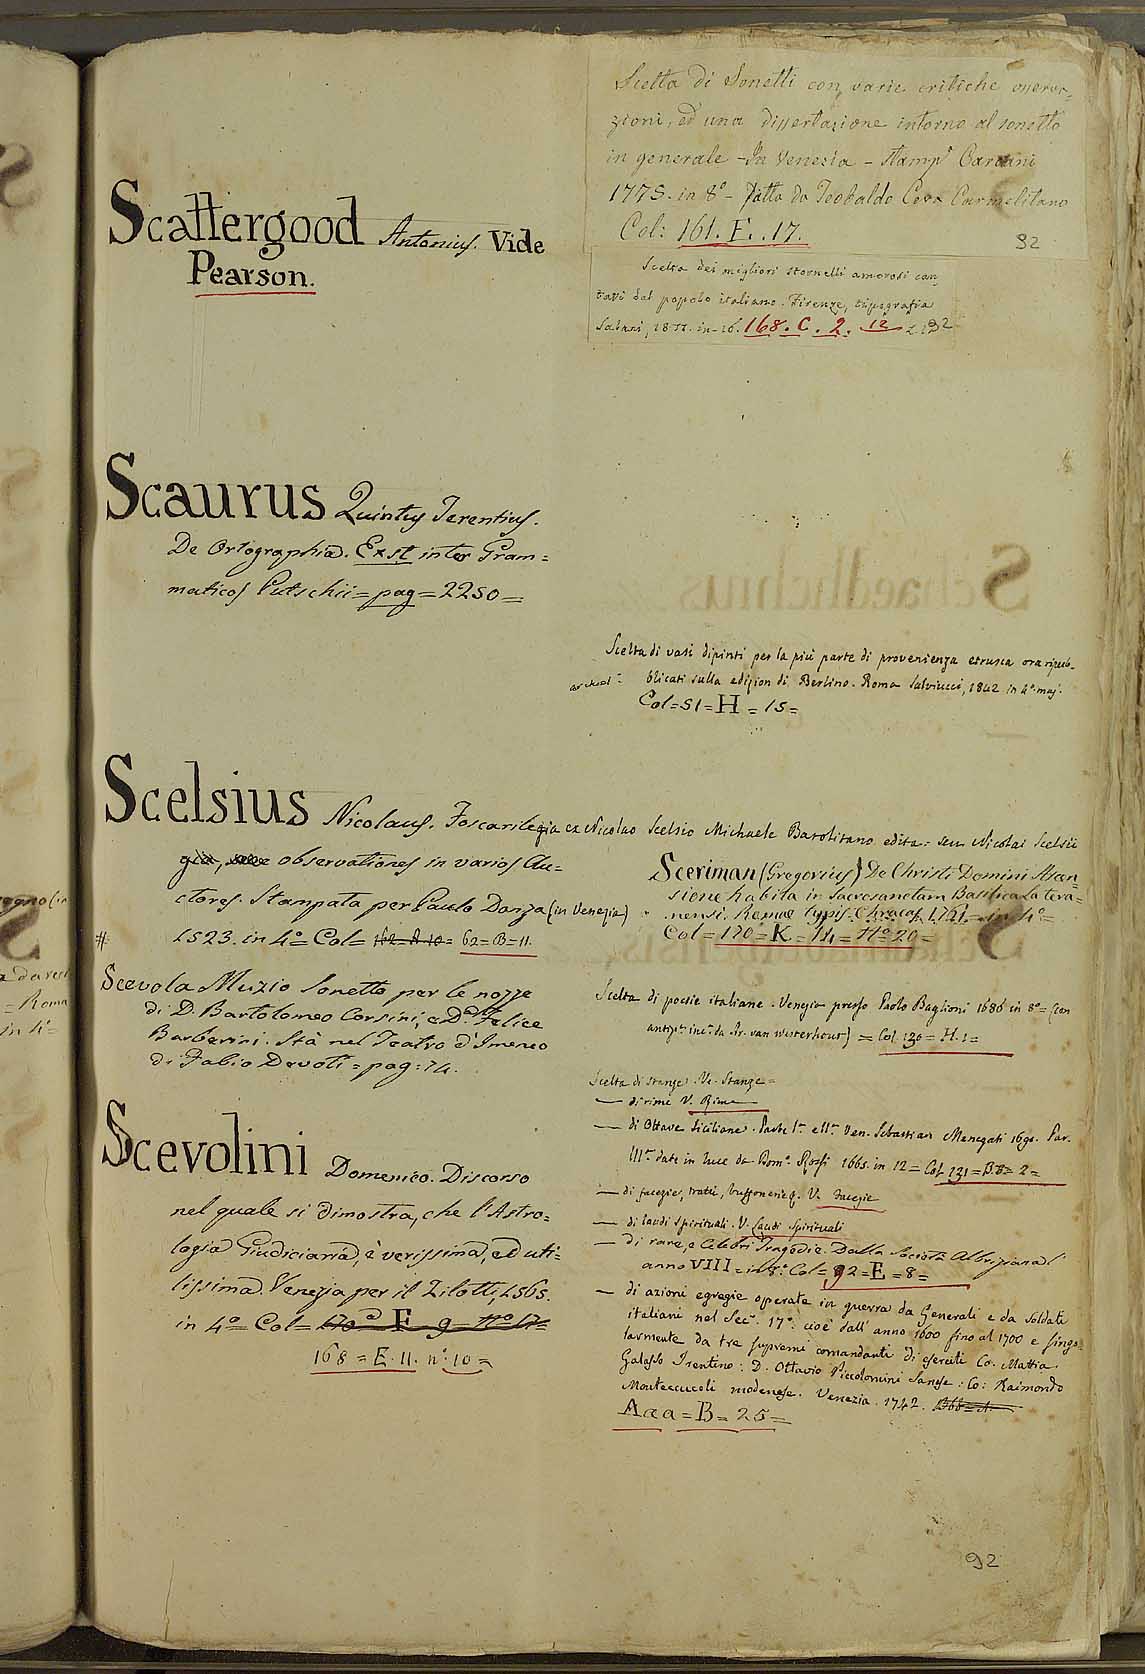 Scattergood Antonius. Vide
Pearson.
Scaurus Quintus Terentius.
De Ortographia. Exst inter Gram=
maticos Putschii = pag = 2250 =
Scelsius Nicolaus. Foscarilegia ex Nicolao Scelsio Michaele Barolitano edita: seu Nicolai Scelsii
observationes in varios Au=
ctores. Stampata per Paulo Danza (in Venezia)
# 1523. in 4º = Col = 162 = A 10 = 62 = B = 11.
Scevola Muzio Sonetto per le nozze
di D. Bartolomeo Corsini, e Dª. Felice
Barberini. Stà nel Teatro d'Imeneo
di Fabio Devoti = pag: 74.
Scevolini Domenico. Discorso
nel quale si dimostra, che l'Astro=
logia Giudiciaria, è verissima, ed uti=
lissima. Venezia per il Zilotti, 1565.
in 4º = Col =
168 = E. 11. nº: 10 =
Scelta di Sonetti con varie critiche osserva=
zioni, ed una dissertazione intorno al sonetto
in generale - In Venezia - Stamp.
1775. in 8º - fatta da Teobaldo Ceva Carmelitano
Col: 161. E. .17.
92
Scelta dei migliori stornelli amorosi can=
tati dal popolo italiano. Firenze, tipografia
Salani, 1877. in-16. 168. C. 2. 12
Scelta di vasi dipinti per la più parte di provenienza etrusca ora ripub=
archeol. blicati sulla edizion di Berlino. Roma Salviucci, 1842 in 4º maj.
Col = 51 = H = 15 =
Sceriman (Gregorius) De Christi Domini Ascen=
sione habita in Sacrosanctam Basilica Latera=
nensi. Romae Typis Chracas 1761. = in 4º =
Col = 170 = K = 14 = nº 20 =
Scelta di poesie italiane. Venezia presso Paolo Baglioni 1686 in 8º = (con
antipª. incª. da Ar. van Westerhout) = Col. 130 = H. 1 =
Scelta di stanze. V. Stanze =
— di rime V. Rime
— di Ottave Siciliane. Parte Iª. e IIª. Ven. Sebastian Menegati 1690. Par.
IIIª. date in luce da Domº. Rossi 1665. in 12 = Col 231 = B. 8 = 2 =
— di facezie, tratti, buffonerie &. V. Facezie
— di laudi spirituali. V. Laudi Spirituali
— di rare, e Celebri Tragedie. Dalla Società Albrizziana l'
anno VIII = in 8º: Col = 92 = E = 8 =
— di azioni egregie operate in guerra da Generali e da Soldati
italiani nel Secº. 17º: cioè dall' anno 1600 fino al 1700 e singo=
larmente da tre supremi comandanti di eserciti Co. Mattia
Galasso Trentino: D. Ottavio Piccolomini Sanese: Co: Raimondo
Montecuccoli modenese. Venezia. 1742.
Aaa = B = 25 =
92